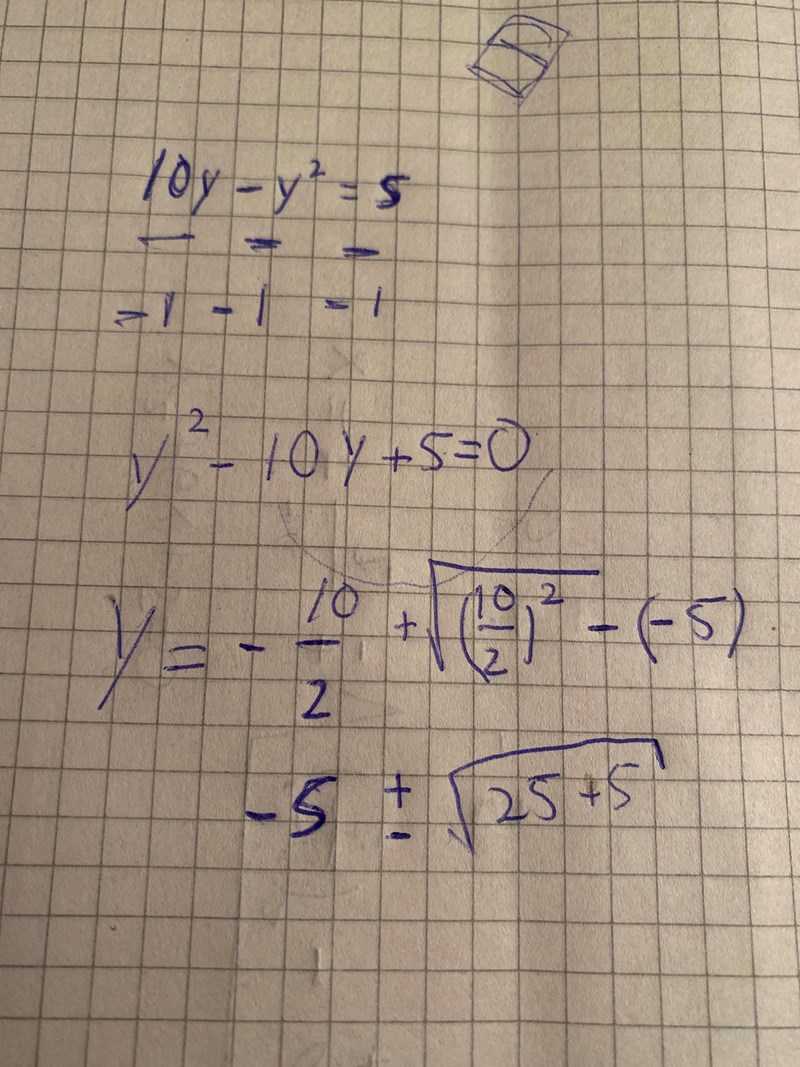 10y - y² = 5
— — —
-1 -1 -1
y² - 10y + 5 = 0
y = - 10/2 + √(10/2)² - (-5)
-5 ± √25 + 5